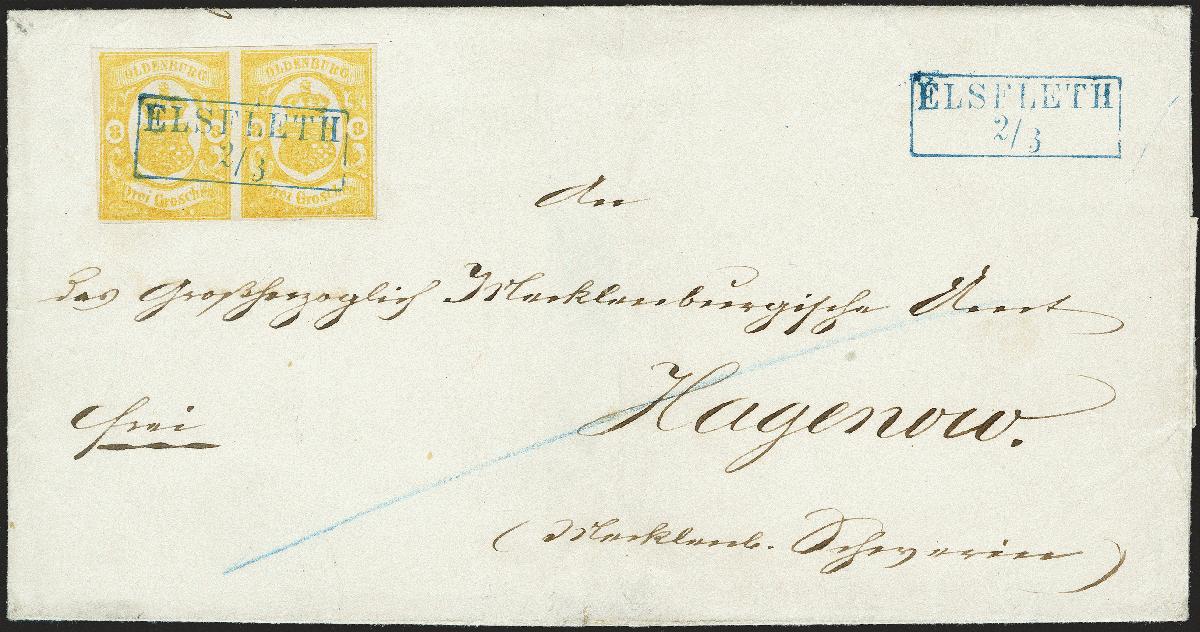 OLDENBURG OLDENBURG
3 3
ELSFLETH
2/3
Drei Groschen Drei Groschen
ELSFLETH
2/3
An
das Großherzoglich Mecklenburgische Amt
Hagenow.
frei
(Mecklenb. Schwerin)